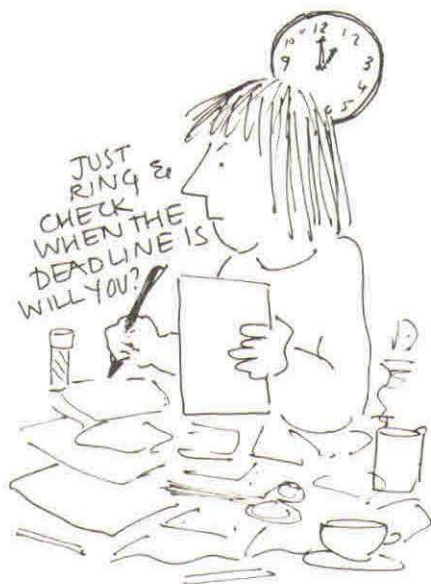 10 11 12 1 2
9 3
4
6 5
JUST
RING &
CHECK
WHEN THE
DEADLINE IS
WILL YOU?